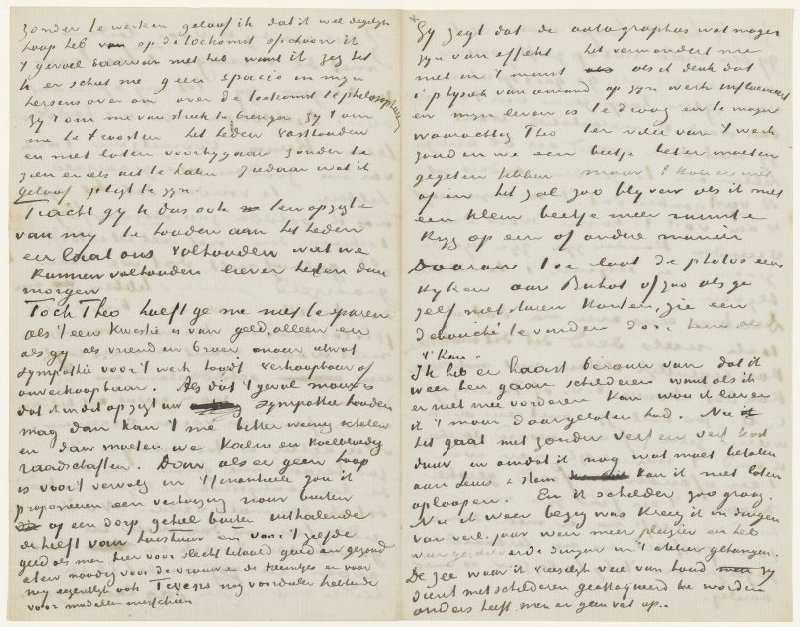 zonder te werken geloof ik dat ik wel degelijk
hoop heb op de toekomst ofschoon ik
't gevoel daarvan niet heb want ik zeg het
U er schiet me geen spacie in mijn
hersens over om over de toekomst te philosopheeren
zij 't om me van streek te brengen zij 't om
me te troosten het heden vasthouden
en niet laten voorbijgaan zonder te
zien er iets uit te halen ziedaar wat ik
geloof pligt te zijn
Tracht gij U dus ook ten opzigte
van mij te houden aan het heden
en laat ons volhouden wat we
kunnen volhouden liever heden dan
morgen
Toch Theo hoeft ge me niet te sparen
als 't een kwestie is van geld, alleen en
als gij als vriend en broer maar altijd
sympathie voor 't werk houdt verkoopbaar of
onverkoopbaar. Als dat 't geval
dat ik in dit opzigt uw sympathie houden
mag dan kan 't me bitter weinig schelen
en dan moeten we kalm en koelbloedig
raadschaffen. Dan als er geen hoop
is voor 't vervolg in 't finantieele zou ik
proponeeren een verhuizing naar buiten
op een dorp geheel buiten uithalende
de helft van huishuur en voor 't zelfde
geld als men hier voor slecht betaald goed en gezond
eten noodig voor de vrouw en de kleintjes en voor
mij eigenlijk ook Tevens nog voordeelen hebbende
voor modellen misschien
Gij zegt dat de autographies wat mager
zijn van effekt het verwondert me
niet in 't minst als ik denk dat
't physiek van iemand op zijn werk influenceert
en mijn leven is te droog en te mager
waarachtig Theo ter wille van 't werk
zouden we een beetje beter moeten
gegeten hebben maar 't kon er niet
af en het zal zoo blijven als ik niet
een klein beetje meer ruimte
krijg op een of andere manier
Daarom toe laat de photos eens
kijken aan Buhot of zoo als ge
zelf niet durft zie een
debouché te vinden door hem als
't kan
Ik heb er haast berouw van dat ik
weer ben gaan schilderen want als ik
er niet mee vorderen kan wou ik liever
ik 't maar daargelaten had. Nu
het gaat niet zonder verf en verf kost
duur en omdat ik nog wat moet betalen
aan Leurs & Stam kan ik niet laten
oploopen. En ik schilder zoo graag.
Nu ik weer bezig was kreeg ik in dingen
van verl. jaar weer meer pleizier en heb
weer geschilderde dingen in 't atelier gehangen.
De zee waar ik vreeselijk veel van houd
dient met schilderen geattaqueerd te worden
anders heeft men er geen vat op..